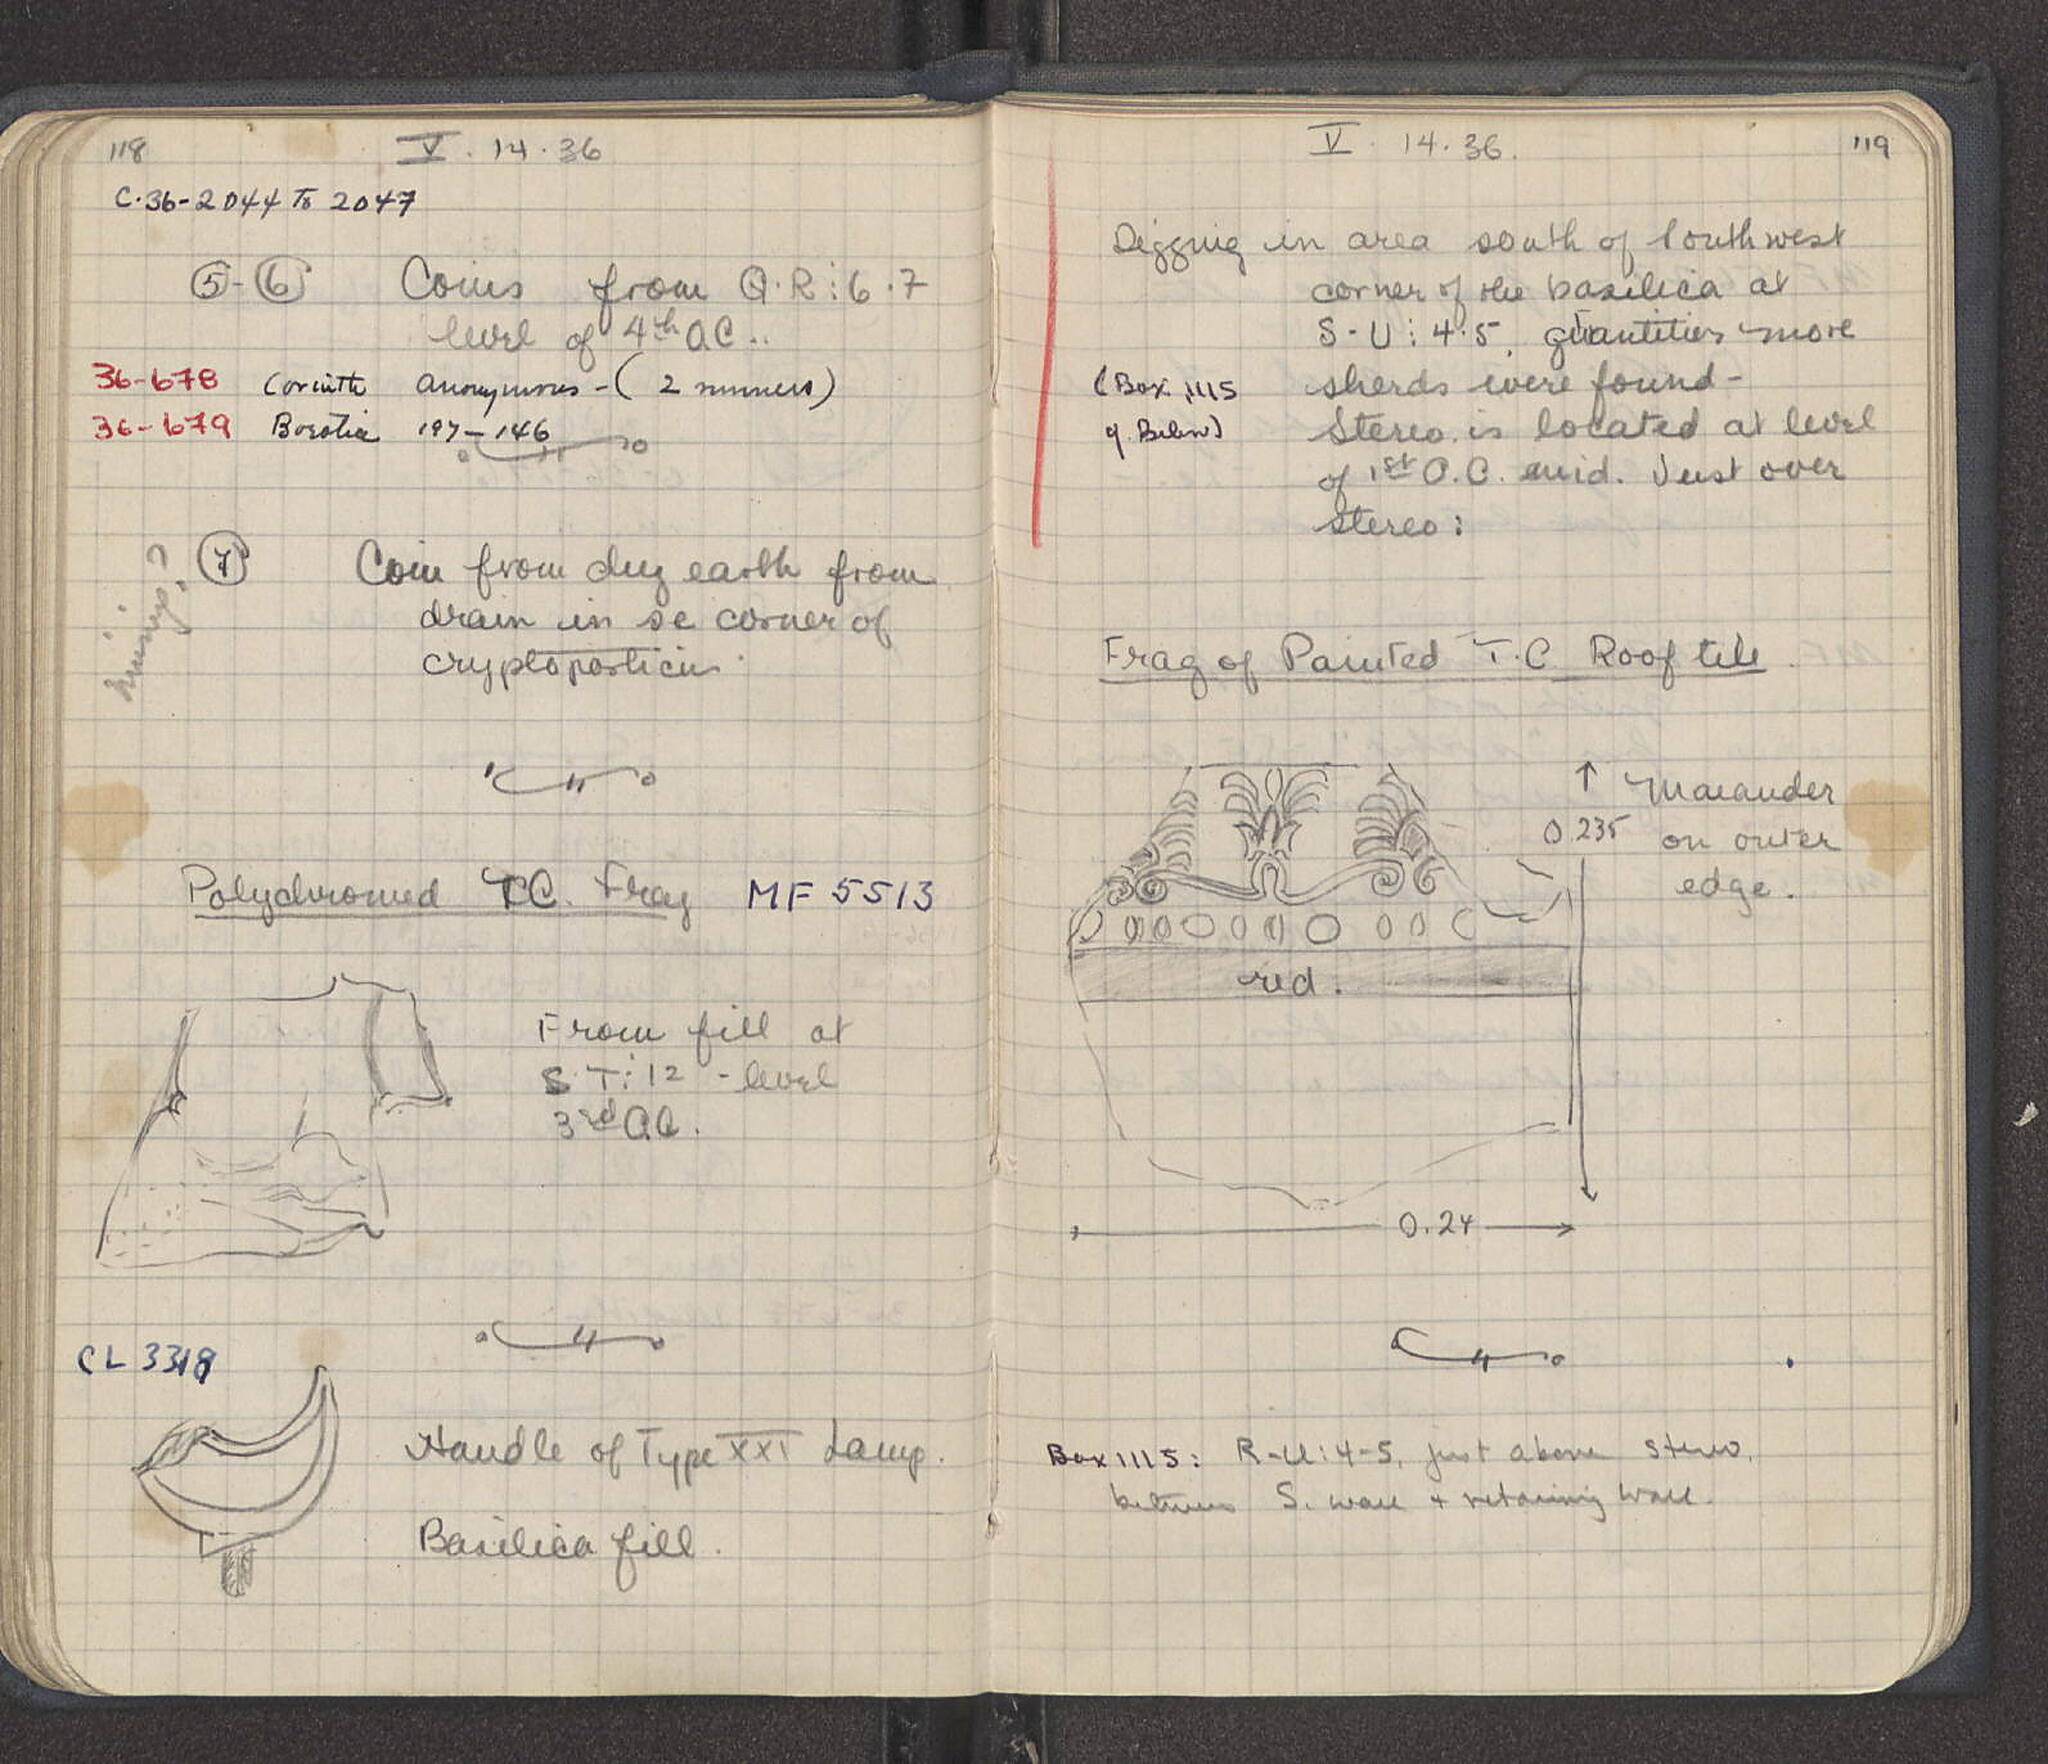 118
V. 14. 36
C-36-2044 To 2047
⑤-⑥ Coins from Q-R:6.7
level of 4th A.C..
36-678 Corinth Anonymous - (2 runners)
36-679 Boeotia 197-146
⑦ Coin from dug earth from
missing?
drain in se corner of
cryptoporticus.
Polychromed T.C. Frag MF 5513
From fill at
S-T:12 - level
3rd A.C.
CL 3318
Handle of Type XXI Lamp.
Basilica fill.
V. 14. 36.
119
Digging in area south of southwest
corner of the basilica at
S-U:4.5, quantities more
(Box 1115 sherds were found -
q. Below) Stereo is located at level
of 1st A.C. mid. Just over
stereo:
Frag of Painted T.C. Roof tile.
↑ Maeander
0.235 on outer
edge.
red.
0.24
Box 1115: R-U:4-5, just above stereo,
between S. wall + retaining wall.